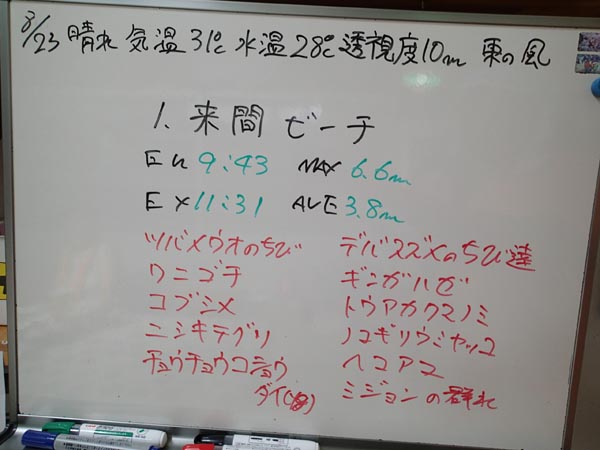 8/23 晴れ 気温31℃ 水温28℃ 透視度10m 東の風
1. 来間 ビーチ
En 9:43 MAX 6.6m
Ex 11:31 AVE 3.8m
ツバメウオのちび デバスズメのちび達
ワニゴチ ギンガハゼ
コブシメ トウアカクマノミ
ニシキテグリ ノコギリウミヤッコ
チョウチョウコショウ ヘコアユ
ダイ ミジョンの群れ